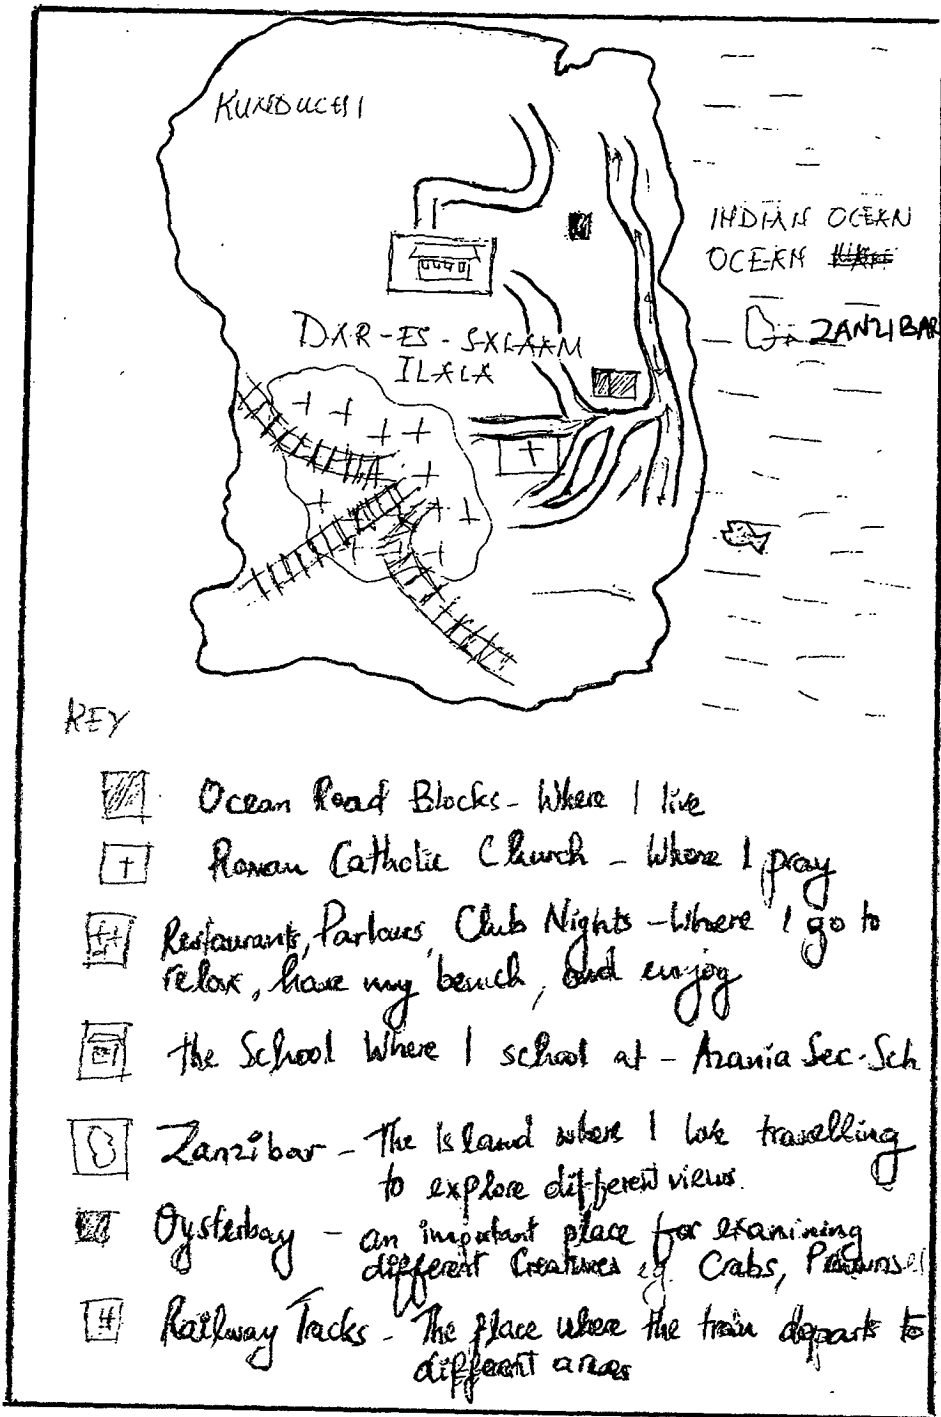 KUNDUCHI
INDIAN OCEAN
OCEAN
ZANZIBAR
DAR-ES-SALAAM
ILALA
KEY
Ocean Road Blocks - Where I live
Roman Catholic Church - Where I pray
Restaurants, Parlours, Club Nights - Where I go to
relax, have my bench, and enjoy
the School Where I school at - Azania Sec. Sch
Zanzibar - The Island where I love travelling
to explore different views.
Oysterbay - an important place for examining
different Creatures eg. Crabs, Prawns
Railway Tracks - The place where the train departs to
different areas